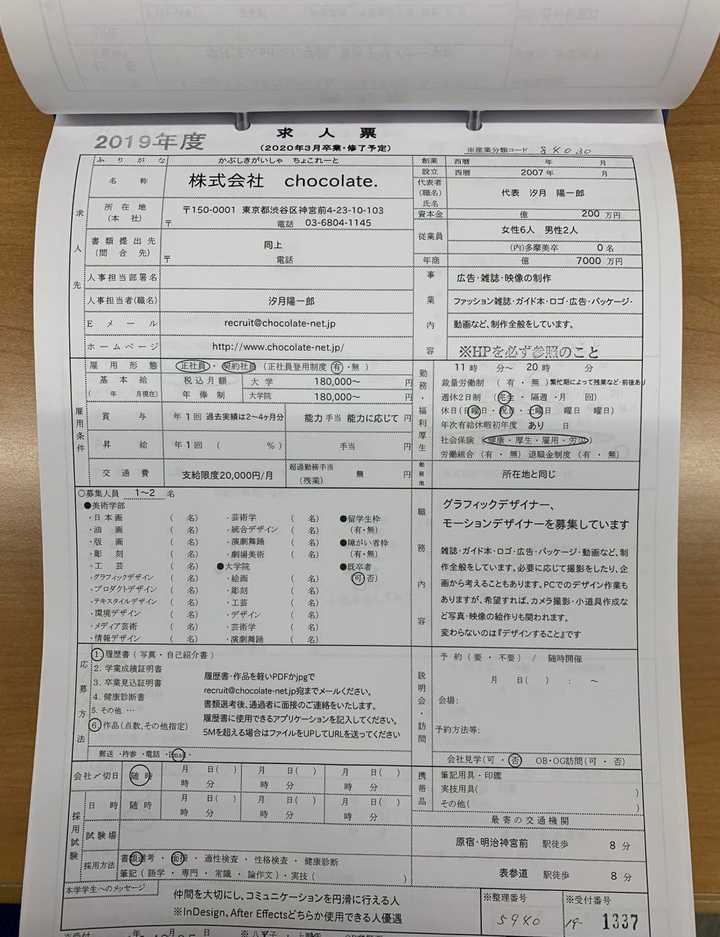 2019年度
求人票
(2020年3月卒業・修了予定)
※産業分類コード 84030
ふりがな かぶしきがいしゃ ちょこれーと
名称 株式会社 chocolate.
創業 西暦 年 月
設立 西暦 2007年 月
求人先
所在地(本社) 〒150-0001 東京都渋谷区神宮前4-23-10-103
〒 電話 03-6804-1145
代表者(職名)氏名 代表 汐月 陽一郎
資本金 億 200 万円
書類提出先(問合先) 同上
〒 電話
従業員 女性6人 男性2人
(内)多摩美卒 0名
年商 億 7000 万円
人事担当部署名
人事担当者(職名) 汐月陽一郎
Eメール recruit@chocolate-net.jp
ホームページ http://www.chocolate-net.jp/
事業内容
広告・雑誌・映像の制作
ファッション雑誌・ガイド本・ロゴ・広告・パッケージ・
動画など、制作全般をしています。
※HPを必ず参照のこと
雇用条件
雇用形態 正社員・契約社員 (正社員登用制度 有・無)
基本給 税込月額 大学 180,000~ 円
( 年 月現在) 年俸制 大学院 180,000~ 円
賞与 年1回 過去実績は2~4ヶ月分 能力手当 能力に応じて 円
昇給 年1回 ( %) 手当 円
交通費 支給限度20,000円/月 超過勤務手当(残業) 無 円
勤務・福利厚生
11時 分~ 20時 分
裁量労働制 ( 有・無) 繁忙期によって残業など・前後あり
週休2日制 (完全・隔週・月 回)
休日(日曜日・祝日・土曜日 曜日 曜日)
年次有給休暇初年度 あり 日
社会保険 健康・厚生・雇用・労災
労働組合 (有・無) 退職金制度 (有・無)
勤務地 所在地と同じ
○募集人員 1~2 名
●美術学部
・日本画 ( 名)
・油画 ( 名)
・版画 ( 名)
・彫刻 ( 名)
・工芸 ( 名)
・グラフィックデザイン ( 名)
・プロダクトデザイン ( 名)
・テキスタイルデザイン ( 名)
・環境デザイン ( 名)
・メディア芸術 ( 名)
・情報デザイン ( 名)
・芸術学 ( 名)
・統合デザイン ( 名)
・演劇舞踊 ( 名)
・劇場美術 ( 名)
●大学院
・絵画 ( 名)
・彫刻 ( 名)
・工芸 ( 名)
・デザイン ( 名)
・芸術学 ( 名)
・演劇舞踊 ( 名)
●留学生枠
(有・無)
●障がい者枠
(有・無)
●既卒者
(可・否)
職務内容
グラフィックデザイナー、
モーションデザイナーを募集しています
雑誌・ガイド本・ロゴ・広告・パッケージ・動画など、制
作全般をしています。必要に応じて撮影をしたり、企
画から考えることもあります。PCでのデザイン作業も
ありますが、希望すれば、カメラ撮影・小道具作成な
ど写真・映像の絵作りも関われます。
変わらないのは『デザインすること』です
応募方法
1. 履歴書(写真・自己紹介書)
2. 学業成績証明書
3. 卒業見込証明書
4. 健康診断書
5. その他 …
6. 作品(点数、その他指定)
履歴書・作品を軽いPDFかjpgで
recruit@chocolate-net.jp宛までメールください。
書類選考後、通過者に面接のご連絡をいたします。
履歴書に使用できるアプリケーションを記入してください。
5Mを超える場合はファイルをUPしてURLを送ってください
郵送・持参・電話・
説明会・訪問
予約(要・不要) / 随時開催
月 日( ) : ~
会場:
予約方法等:
会社見学(可・否) OB・OG訪問(可・否)
会社〆切日 随時 月 日( ) 時 分 月 日( ) 時 分 月 日( ) 時 分
携帯品
筆記用具・印鑑
実技用具( )
その他( )
採用試験
日時 随時 月 日( ) 時 分 月 日( ) 時 分 月 日( ) 時 分
試験場
採用方法 書類選考・面接・適性検査・性格検査・健康診断
筆記(語学・専門・常識・論作文)・実技( )
最寄の交通機関
原宿・明治神宮前 駅徒歩 8分
表参道 駅徒歩 8分
本学学生へのメッセージ
仲間を大切にし、コミュニケーションを円滑に行える人
※InDesign、After Effectsどちらか使用できる人優遇
※整理番号 5940
※受付番号 19- 1337